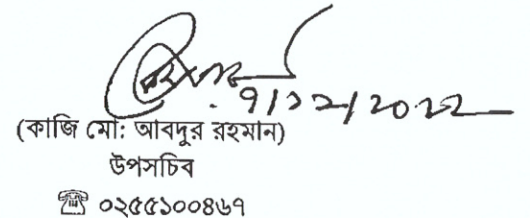 ৭/১২/২০২২
(কাজি মো: আবদুর রহমান)
উপসচিব
☎ ০২৫৫১০০৪৬৭